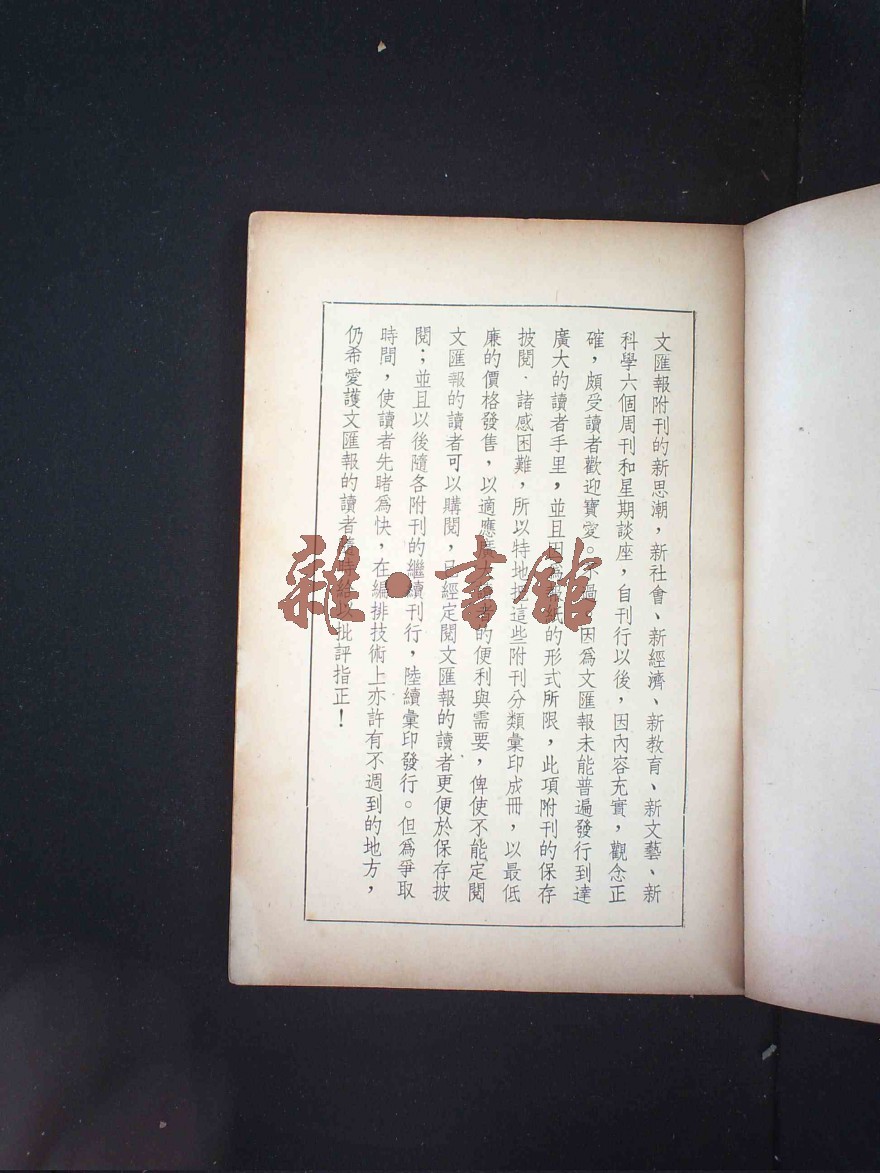 文匯報附刊的新思潮，新社會、新經濟、新教育、新文藝、新
科學六個周刊和星期談座，自刊行以後，因內容充實，觀念正
確，頗受讀者歡迎寶愛。不過，因爲文匯報未能普遍發行到達
廣大的讀者手里，並且因爲報紙的形式所限，此項附刊的保存
披閱．諸感困難，所以特地把這些附刊分類彙印成冊，以最低
廉的價格發售，以適應廣大讀者的便利與需要，俾使不能定閱
文匯報的讀者可以購閱，已經定閱文匯報的讀者更便於保存披
閱；並且以後隨各附刊的繼續刊行，陸續彙印發行。但爲爭取
時間，使讀者先睹爲快，在編排技術上亦許有不週到的地方，
仍希愛護文匯報的讀者隨時給以批評指正！
雜·書館